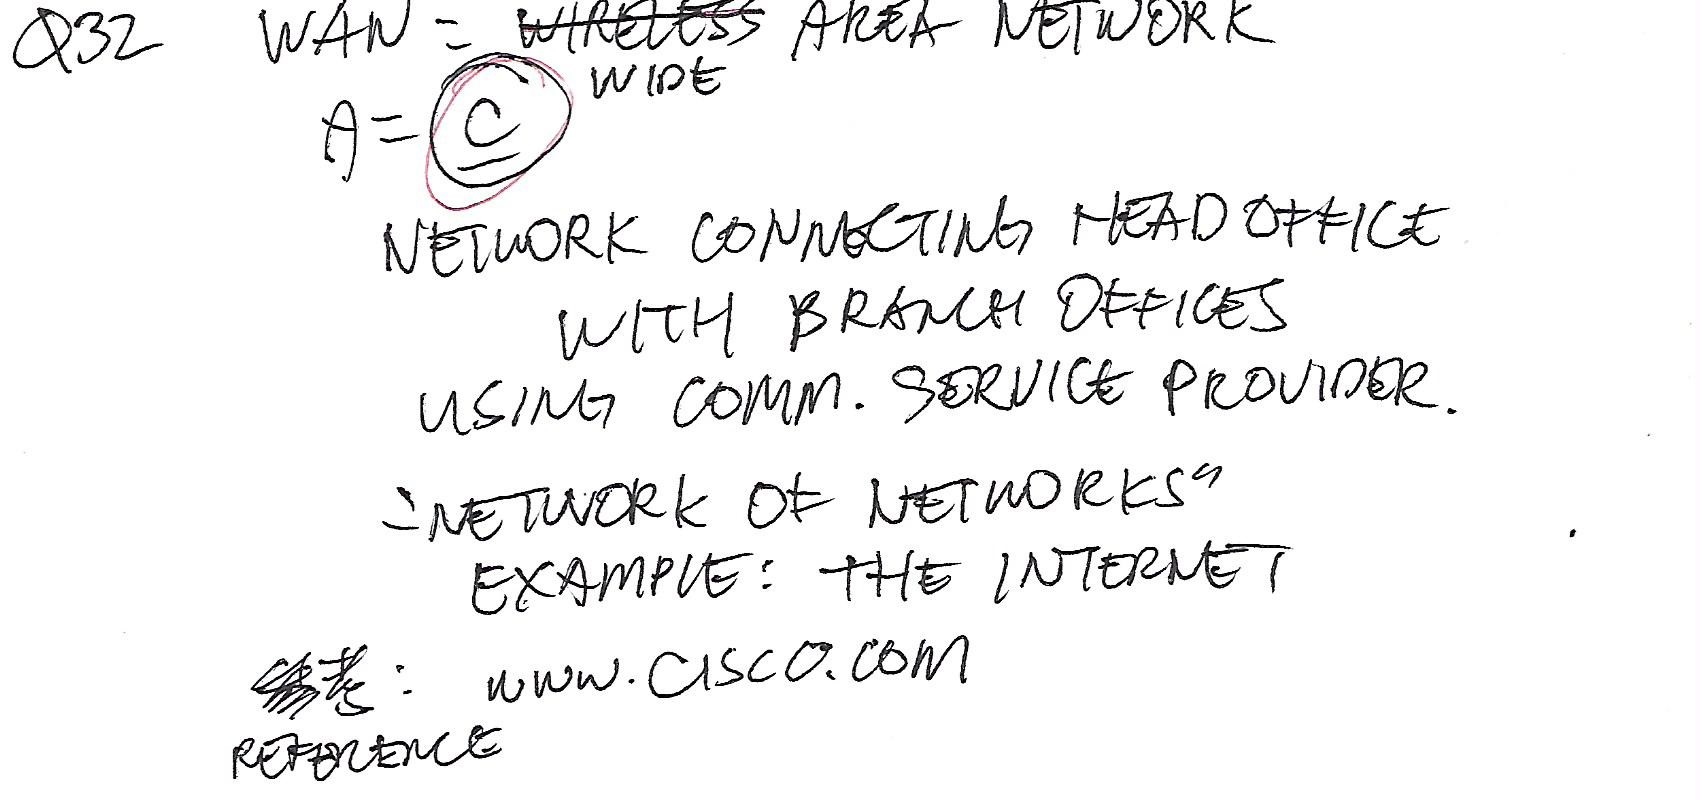 Q32 WAN = WIRELESS AREA NETWORK
WIDE
A = C
NETWORK CONNECTING HEAD OFFICE
WITH BRANCH OFFICES
USING COMM. SERVICE PROVIDER.
"NETWORK OF NETWORKS"
EXAMPLE: THE INTERNET
参考: www.CISCO.COM
REFERENCE